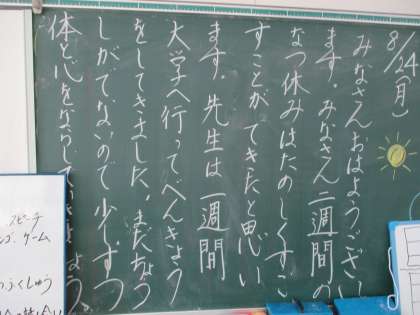 8/24(月)
みなさんおはようござい
ます。みなさん二週間の
なつ休みはたのしくすご
すことができたと思い
ます。先生は一週間
大学へ行ってべんきょう
をしてきました。まだちょう
しがでないので少しずつ
体と心をならして
スピーチ
ゲーム
ふくしゅう